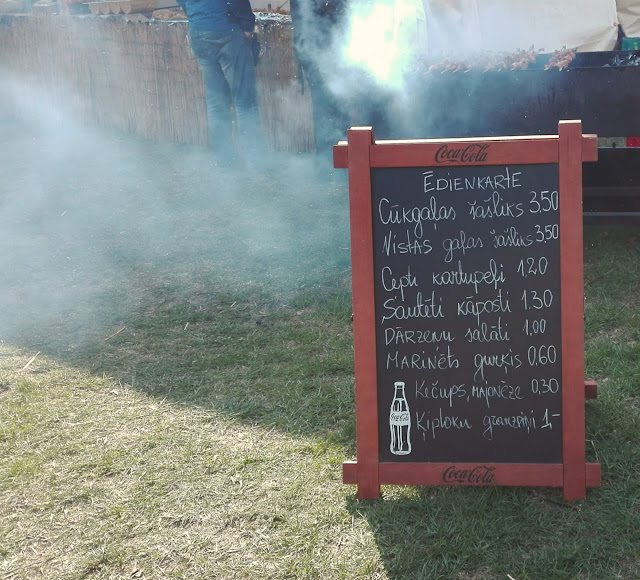 Coca-Cola
ĒDIENKARTE
Cūkgaļas šašliks 3,50
Vistas gaļas šašliks 3,50
Cepti kartupeļi 1.20
Sautēti kāposti 1.30
DĀRZEŅU salāti 1,00
MARINĒTS gurķis 0,60
Kečups, MAJONĒZE 0,30
Ķiploku grauzdiņi 1,-
Coca-Cola
Coca-Cola